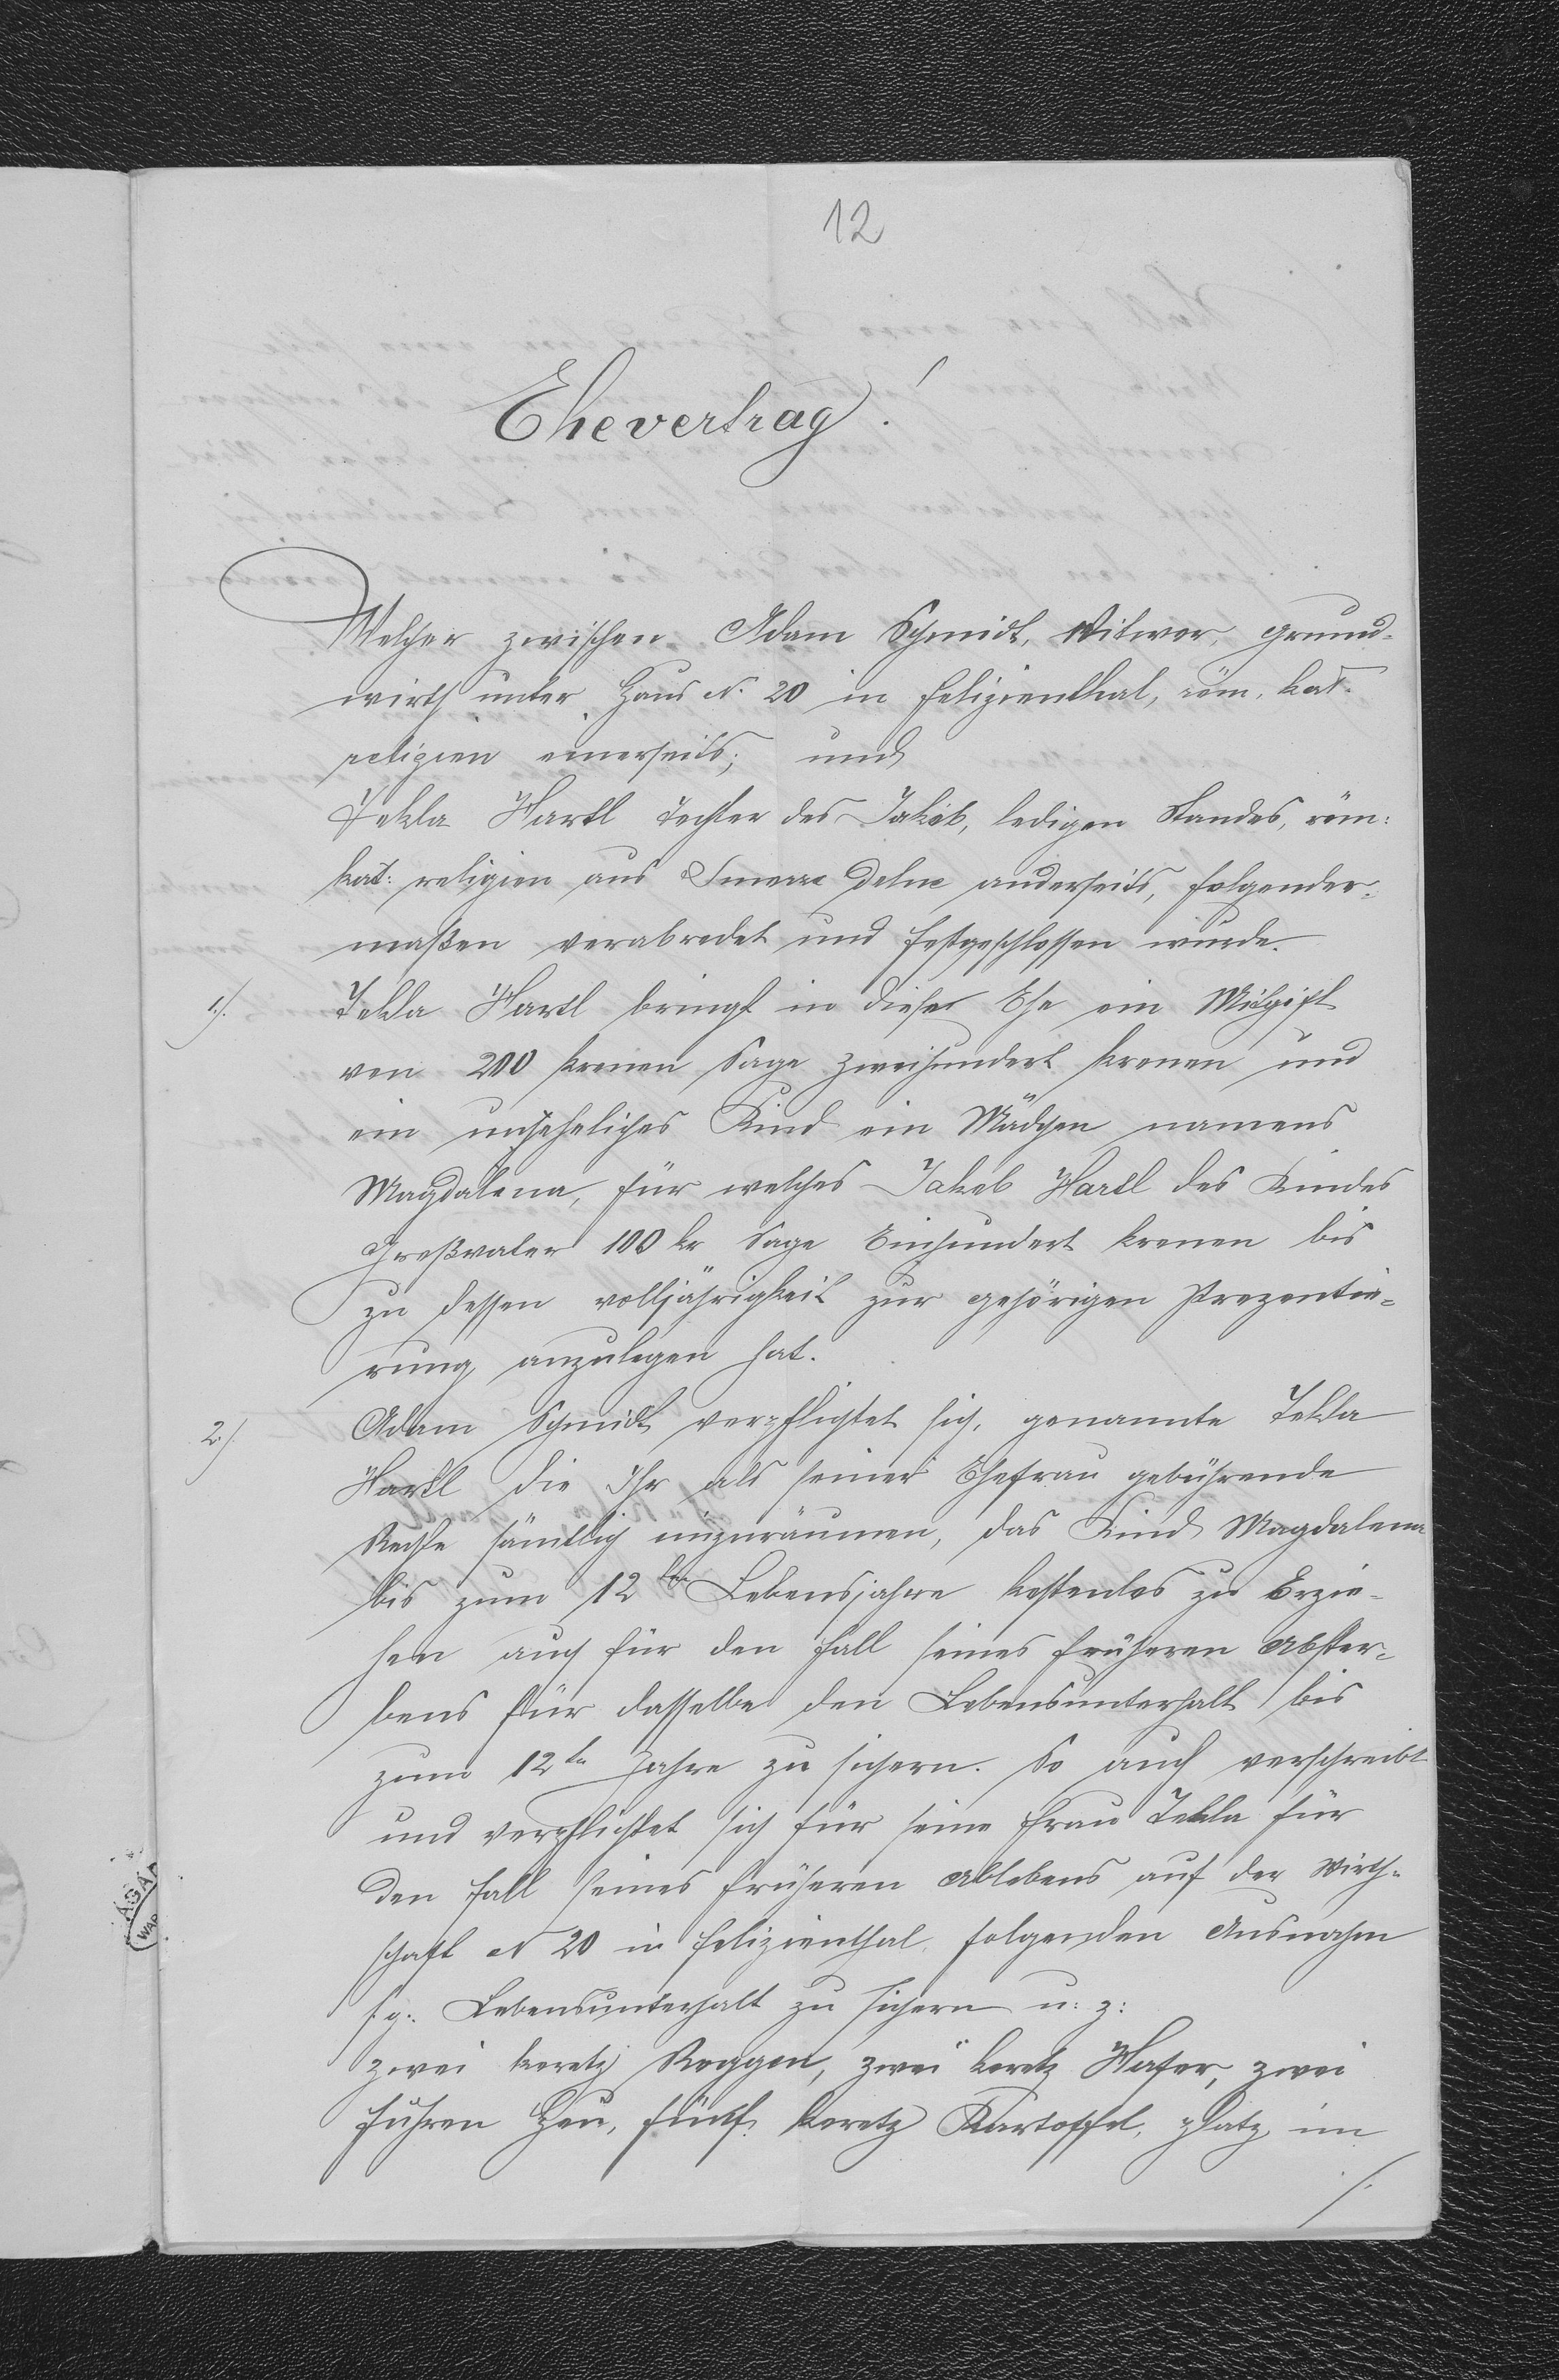 12
Ehevertrag!
Welcher zwischen Adam Schmidt, Witwer, Grund-
wirth unter Haus N. 20 in Felizienthal, röm. kat.
religion einerseits; und
Tekla Hartl Tochter des Jakob, ledigen Standes, röm:
kat: religion aus Smorze dolne anderseits, folgender-
maßen verabredet und festgeschlossen wurde.
1.) Tekla Hartl bringt in dieser Ehe ein Mitgift
von 200 Kronen Sage zweihundert Kronen und
ein uneheliches Kind ein Mädchen namens
Magdalena, für welches Jakob Hartl des Kindes
Großvater 100 kr Sage Einhundert Kronen bis
zu dessen volljährigkeit zur gehörigen Prozentie-
rung anzulegen hat.
2.) Adam Schmidt verpflichtet sich, genannte Tekla
Hartl die Ihr als seiner Ehefrau gebührende
Rechte sämtlich einzuräumen, das Kind Magdalena
bis zum 12ten Lebensjahre kostenlos zu Erzie-
hen auch für den Fall seines früheren Abster-
bens für dasselbe den Lebensunterhalt bis
zum 12tn Jahre zu sichern. So auch verschreibt
und verpflichtet sich für seine Frau Tekla für
den Fall seines früheren Ablebens auf der Wirth-
schaft N 20 in Felizienthal, folgenden Ausnahm
s. g. Lebensunterhalt zu sichern u: z:
zwei Koretz Roggen, zwei Koretz Hafer, zwei
Fuhren Heu, fünf Koretz Kartoffel, Platz im
./.
AGA
WAR